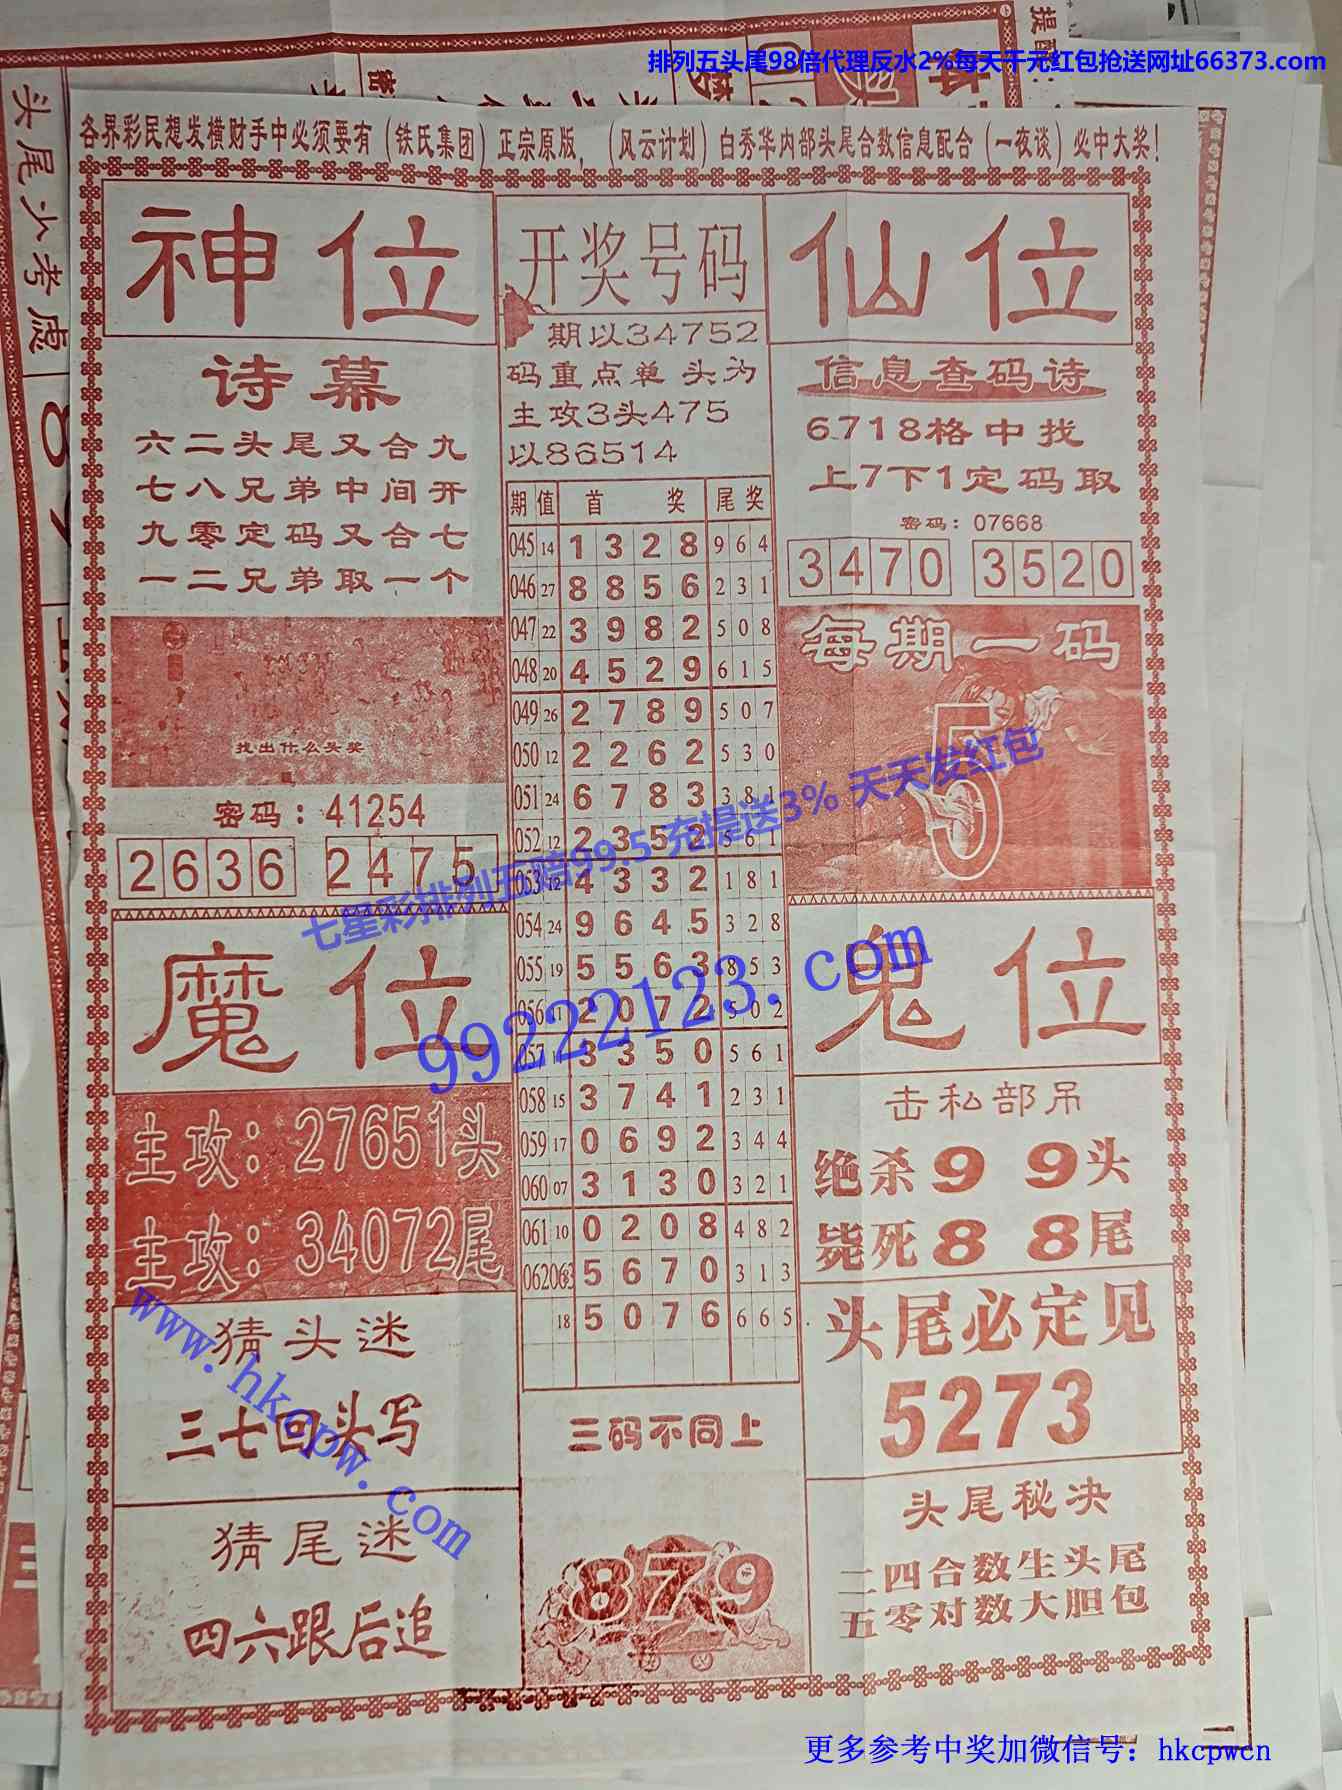 排列五头尾98倍代理反水2%每天千元红包抢送网址66373.com
头尾少考處
各界彩民想发横财手中必须要有（铁氏集团）正宗原版，（风云计划）白秀华内部头尾合数信息配合（一夜谈）必中大奖！
神位
诗幕
六二头尾又合九
七八兄弟中间开
九零定码又合七
一二兄弟取一个
找出什么头奖
密码：41254
2636 2475
开奖号码
期以34752
码重点单 头为
主攻3头475
以86514
期 值 首 奖 尾奖
045 14 1 3 2 8 9 6 4
046 27 8 8 5 6 2 3 1
047 22 3 9 8 2 5 0 8
048 20 4 5 2 9 6 1 5
049 26 2 7 8 9 5 0 7
050 12 2 2 6 2 5 3 0
051 24 6 7 8 3 3 8 1
052 12 2 3 5 2 5 6 1
053 12 4 3 3 2 1 8 1
054 24 9 6 4 5 3 2 8
055 19 5 5 6 3 8 5 3
056 11 2 0 7 2 5 0 2
057 1 3 3 5 0 5 6 1
058 15 3 7 4 1 2 3 1
059 17 0 6 9 2 3 4 4
060 07 3 1 3 0 3 2 1
061 10 0 2 0 8 4 8 2
062063 5 6 7 0 3 1 3
18 5 0 7 6 6 6 5
三码不同上
879
仙位
信息查码诗
6.718格中找
上7下1定码取
密码：07668
3470 3520
每期一码
5
七星彩排列五赔99.5 充提送3% 天天发红包
99222123.com
魔位
主攻：27651头
主攻：34072尾
猜头迷
三七回头写
猜尾迷
四六跟后追
www.hkcpw.com
鬼位
击私部吊
绝杀9 9头
毙死8 8尾
头尾必定见
5273
头尾秘决
二四合数生头尾
五零对数大胆包
更多参考中奖加微信号：hkcpwcn